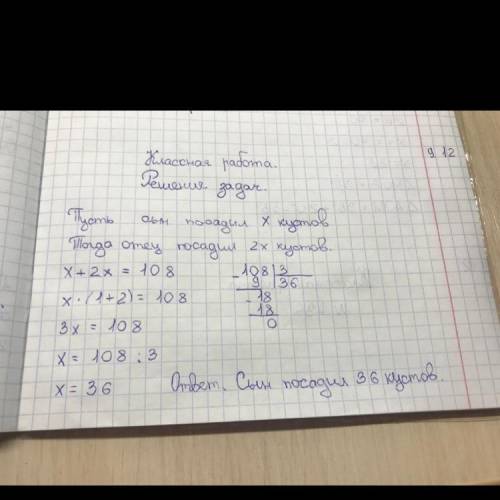 Классная работа.
9 12
Решения задач.
Пусть сын посадил x кустов
Тогда отец посадил 2x кустов.
x + 2x = 108
x · (1+2) = 108
3x = 108
x = 108 : 3
x = 36
- 108 | 3
9 | 36
- 18
18
0
Ответ. Сын посадил 36 кустов.